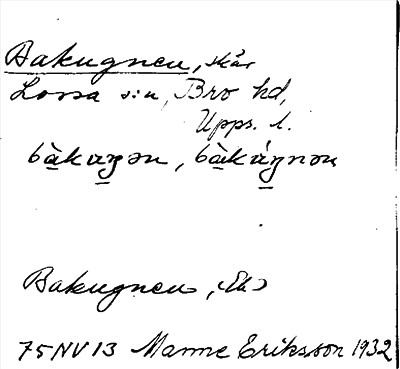 Bakugnen, skär
Lossa sn, Bro hd,
Upps. l.
bàkaŋən, bàkáŋnən
Bakugnen, (Ek)
75NV13 Manne Eriksson 1932